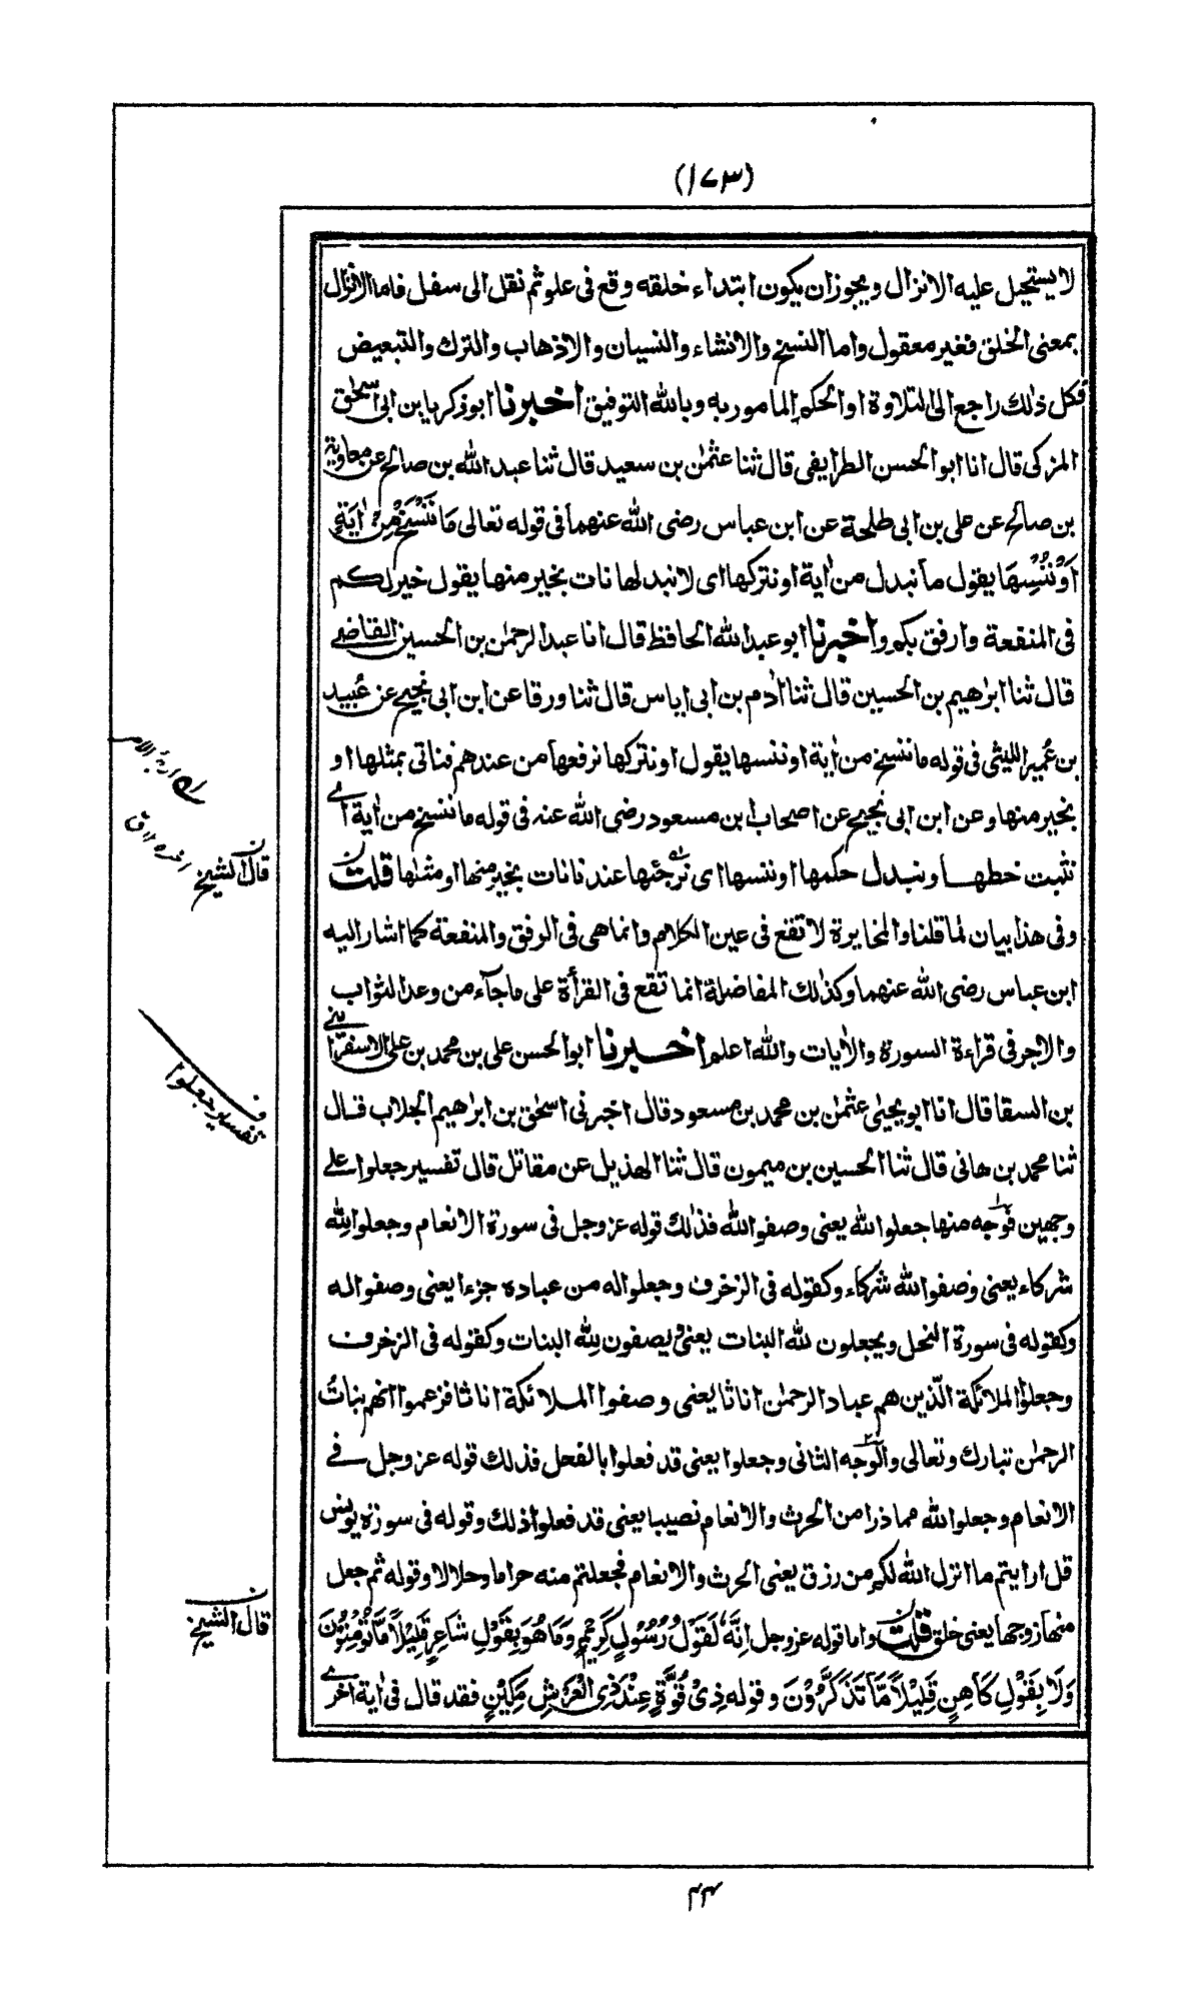 (۱۷۳)
لا يستحيل عليه الانزال ويجوزان يكون ابتداء خلقه وقع فى علو ثم نقل الى سفل فاما الانزال
بمعنى الخلق فغير معقول واما النسخ والانشاء والنسيان والاذهاب والترك والتبعيض
فكل ذلك راجع الى التلاوة او الحكم المامور به وبالله التوفيق اخبرنا ابو زكريا بن ابى اسحٰق
المزكى قال انا ابو الحسن الطرايفى قال ثنا عثمٰن بن سعيد قال ثنا عبد الله بن صالح عن معاوية
بن صالح عن على بن ابى طلحة عن ابن عباس رضى الله عنهما فى قوله تعالى مَا نَنْسَخْ مِنْ اٰيَةٍ
اَوْ نُنْسِهَا يقول ما نبدل من اٰية او نتركها اى لا نبدلها نات بخير منها يقول خير لكم
فى المنفعة وارفق بكم واخبرنا ابو عبد الله الحافظ قال انا عبد الرحمٰن بن الحسين القاضى
قال ثنا ابرٰهيم بن الحسين قال ثنا اٰدم بن ابى اياس قال ثنا ورقا عن ابن ابى نجيح عن عُبيد
بن عُمير الليثى فى قوله ما ننسخ من اٰية او ننسها يقول او نتركها نرفعها من عندهم فناتى بمثلها او
بخير منها وعن ابن ابى نجيح عن اصحاب ابن مسعود رضى الله عنه فى قوله ما ننسخ من اٰية اى
نثبت خطها ونبدل حكمها او ننسها اى نرجئها عندنا نات بخير منها او مثلها قلت
وفى هذا بيان لما قلنا والمخايرة لا تقع فى عين الكلام وانما هى فى الرفق والمنفعة كما اشار اليه
ابن عباس رضى الله عنهما وكذٰلك المفاضلة انما تقع فى القرأة على ما جآء من وعد الثواب
والاجر فى قراءة السورة والاٰيات والله اعلم اخبرنا ابو الحسن على بن محمد بن على الاسفراينى
بن السقا قال انا ابو يحيىٰ عثمٰن بن محمد بن مسعود قال اخبرنى اسحٰق بن ابرٰهيم الجلاب قال
ثنا محمد بن هانى قال ثنا الحسين بن ميمون قال ثنا الهذيل عن مقاتل قال تفسير جعلوا على
وجهين فوجه منها جعلوا لله يعنى وصفوا لله فذٰلك قوله عز وجل فى سورة الانعام وجعلوا لِلّٰه
شركاء يعنى وصفوا لله شركاء وكقوله فى الزخرف وجعلوا له من عباده جزءا يعنى وصفوا له
وكقوله فى سورة النحل ويجعلون لله البنات يعنى ويصفون لِلّٰه البنات وكقوله فى الزخرف
وجعلوا الملائكة الّذين هم عباد الرحمٰن اناثا يعنى وصفوا الملائكة اناثا فزعموا انهم بنات
الرحمٰن تبارك وتعالى والوجه الثانى وجعلوا يعنى قد فعلوا بالفعل فذلك قوله عز وجل فى
الانعام وجعلوا لله مما ذرا من الحرث والانعام نصيبا يعنى قد فعلوا ذلك وقوله فى سورة يونس
قل ارايتم ما انزل الله لكم من رزق يعنى الحرث والانعام فجعلتم منه حراما وحلالا وقوله ثم جعل
منها زوجها يعنى خلق قلت واما قوله عز وجل اِنَّهٗ لَقَوْلُ رَسُوْلٍ كَرِيْمٍ وَمَا هُوَ بِقَوْلِ شَاعِرٍ قَلِيْلاً مَّا تُؤْمِنُوْنَ
وَلَا بِقَوْلِ كَاهِنٍ قَلِيْلاً مَّا تَذَكَّرُوْنَ وقوله ذِىْ قُوَّةٍ عِنْدَ ذِى الْعَرْشِ مَكِيْنٍ فقد قال فى اٰية اخرى
قال الشيخ
ف
تفسير جعلوا
قال الشيخ